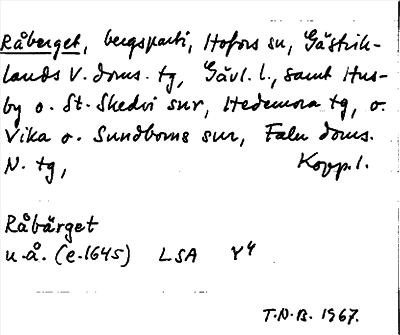 Råberget, bergsparti, Hofors sn, Gästrik-
lands V. doms. tg, Gävl. l., samt Hus-
by o. St. Skedvi snr, Hedemora tg, o.
Vika o. Sundborns snr, Falu doms.
N. tg, Kopp. l.
Råbärget
u.å. (e.1645) LSA Y4
T.D.B. 1967.